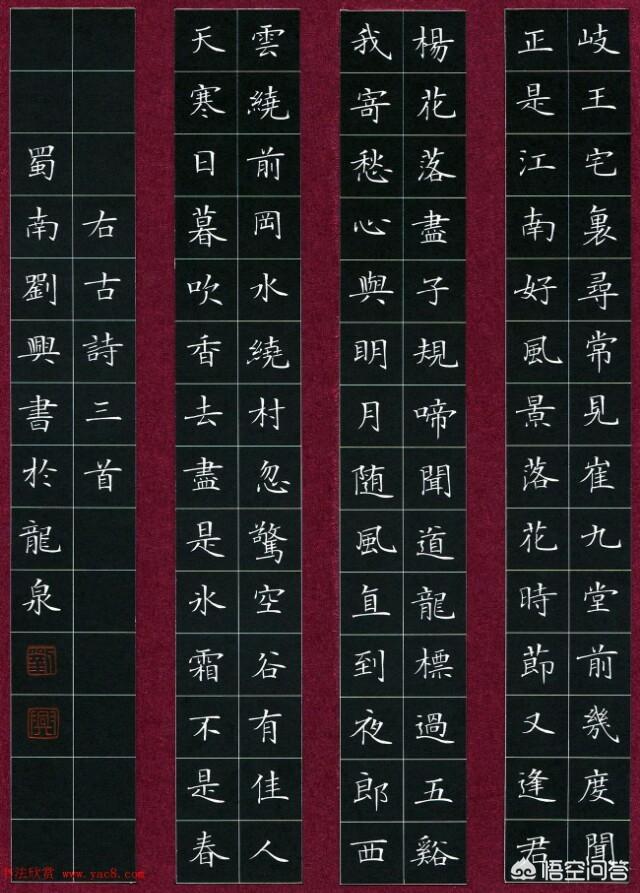 岐王宅裏尋常見崔九堂前幾度聞
正是江南好風景落花時節又逢君
楊花落盡子規啼聞道龍標過五谿
我寄愁心與明月随風直到夜郎西
雲繞前岡水繞村忽驚空谷有佳人
天寒日暮吹香去盡是氷霜不是春
右古詩三首
蜀南劉興書於龍泉
劉
興
书法欣赏 www.yac8.com
悟空问答